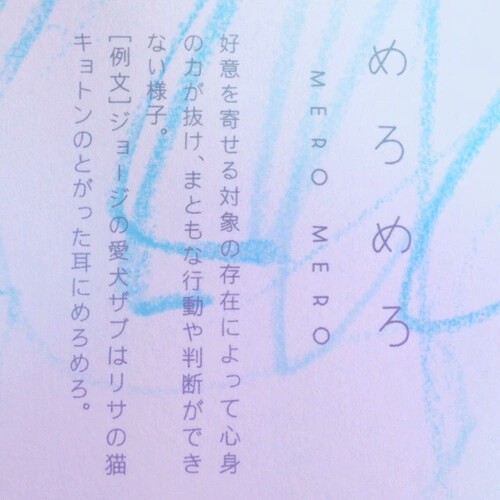 めろめろ
MERO MERO
好意を寄せる対象の存在によって心身
の力が抜け、まともな行動や判断ができ
ない様子。
［例文］ジョージの愛犬ザブはリサの猫
キョトンのとがった耳にめろめろ。